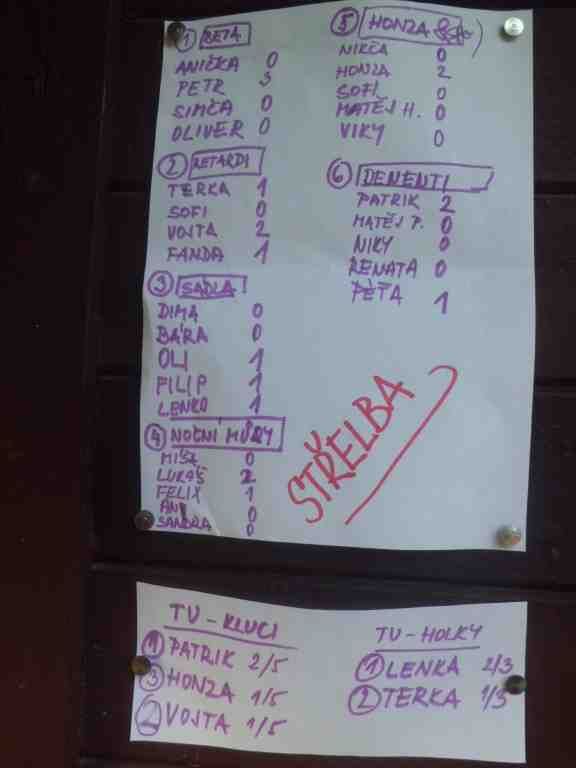 1 BETA
ANIČKA 0
PETR 3
SIMČA 0
OLIVER 0
2 RETARDI
TERKA 1
SOFI 0
VOJTA 2
FANDA 1
3 SÁDLA!
DIMA 0
BÁRA 0
OLI 1
FILIP 1
LENKA 1
4 NOČNÍ MŮRY
MÍŠA 0
LUKÁŠ 2
FELIX 1
ANI 0
SANDRA 0
5 HONZA
NIKČA 0
HONZA 2
SOFI 0
MATĚJ H. 0
VIKY 0
6 DEMENTI
PATRIK 2
MATĚJ P. 0
NIKY 0
RENATA 0
PÉŤA 1
STŘELBA
TV - KLUCI
1 PATRIK 2/5
3 HONZA 1/5
2 VOJTA 1/5
TV - HOLKY
1 LENKA 2/3
2 TERKA 1/3